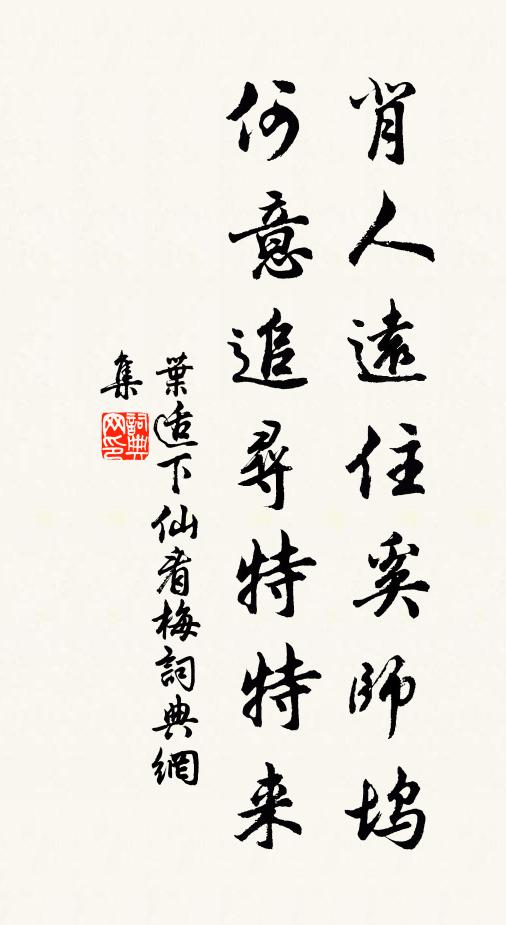 背人遠住奚師塢
何意追尋特特来
葉适下仙看梅詞典網
集
詞典
网印